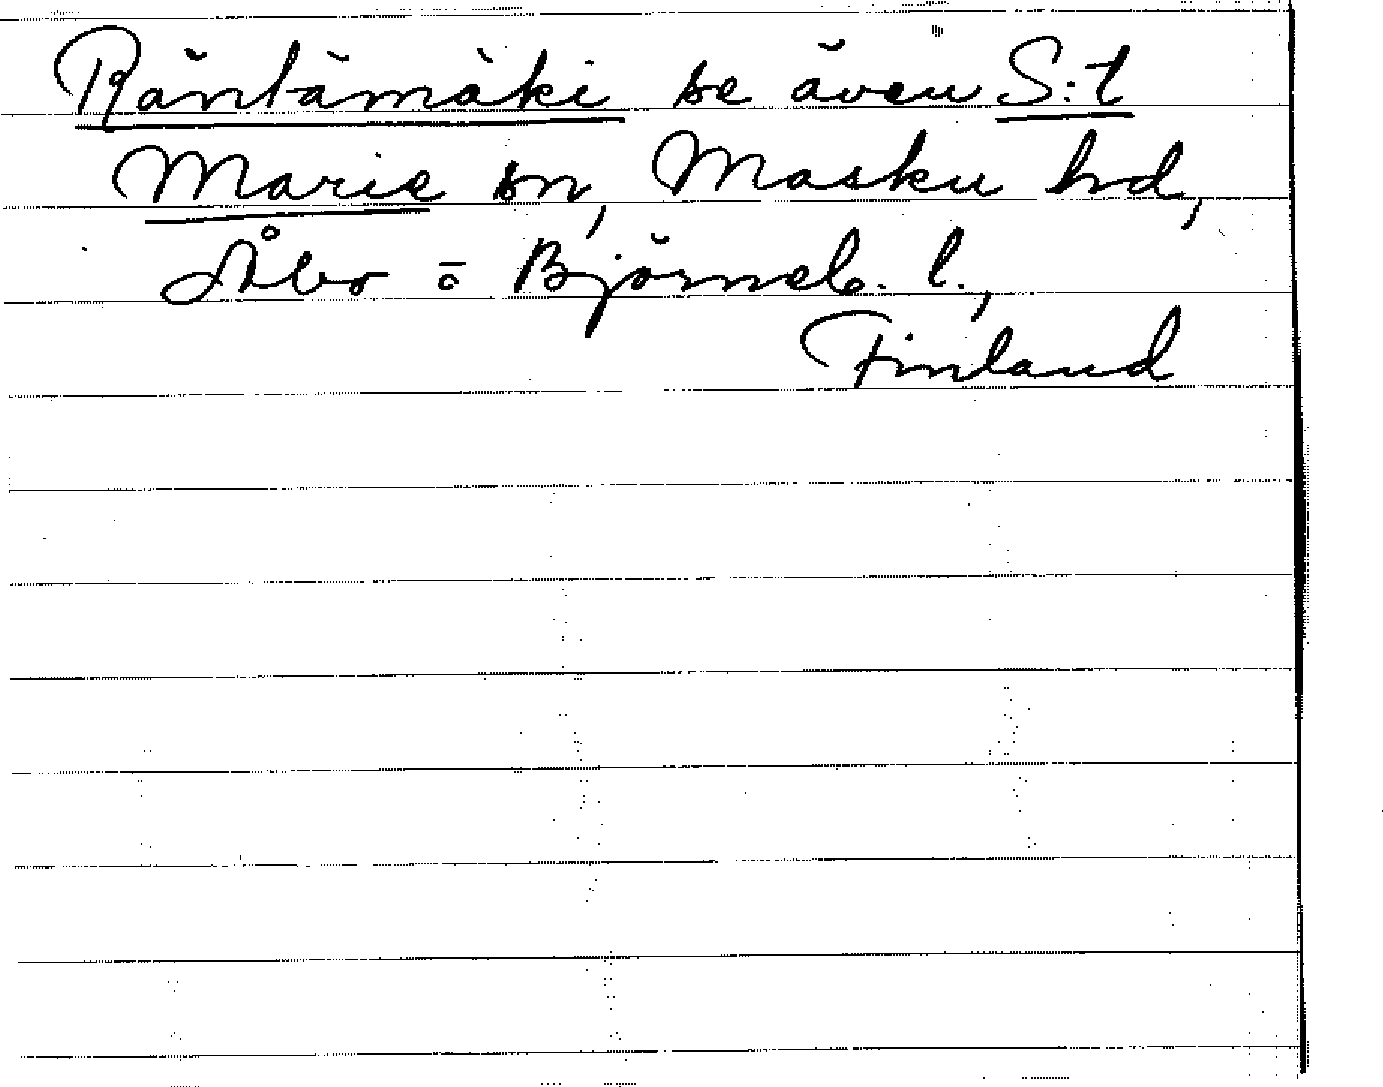 Räntämäki se även S:t
Marie sn, Masku hd,
Åbo o Björneb. l.,
Finland